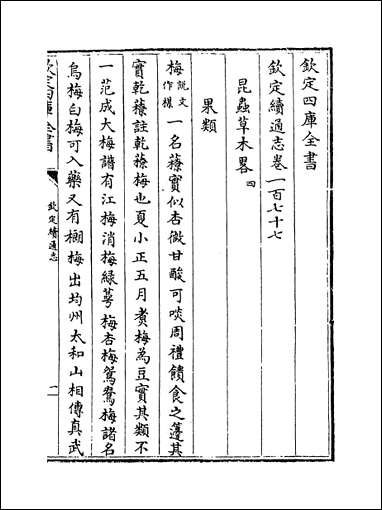 欽定四庫全書
欽定續通志卷一百七十七
昆蟲草木畧四
果類
梅說文作楳一名䕩實似杏微甘酸可啖周禮饋食之籩其
實乾䕩註乾䕩梅也夏小正五月煑梅為豆實其類不
一范成大梅譜有江梅消梅綠萼梅杏梅鴛鴦梅諸名
烏梅白梅可入藥又有棚梅出均州太和山相傳真武
欽定四庫全書
欽定續通志
一